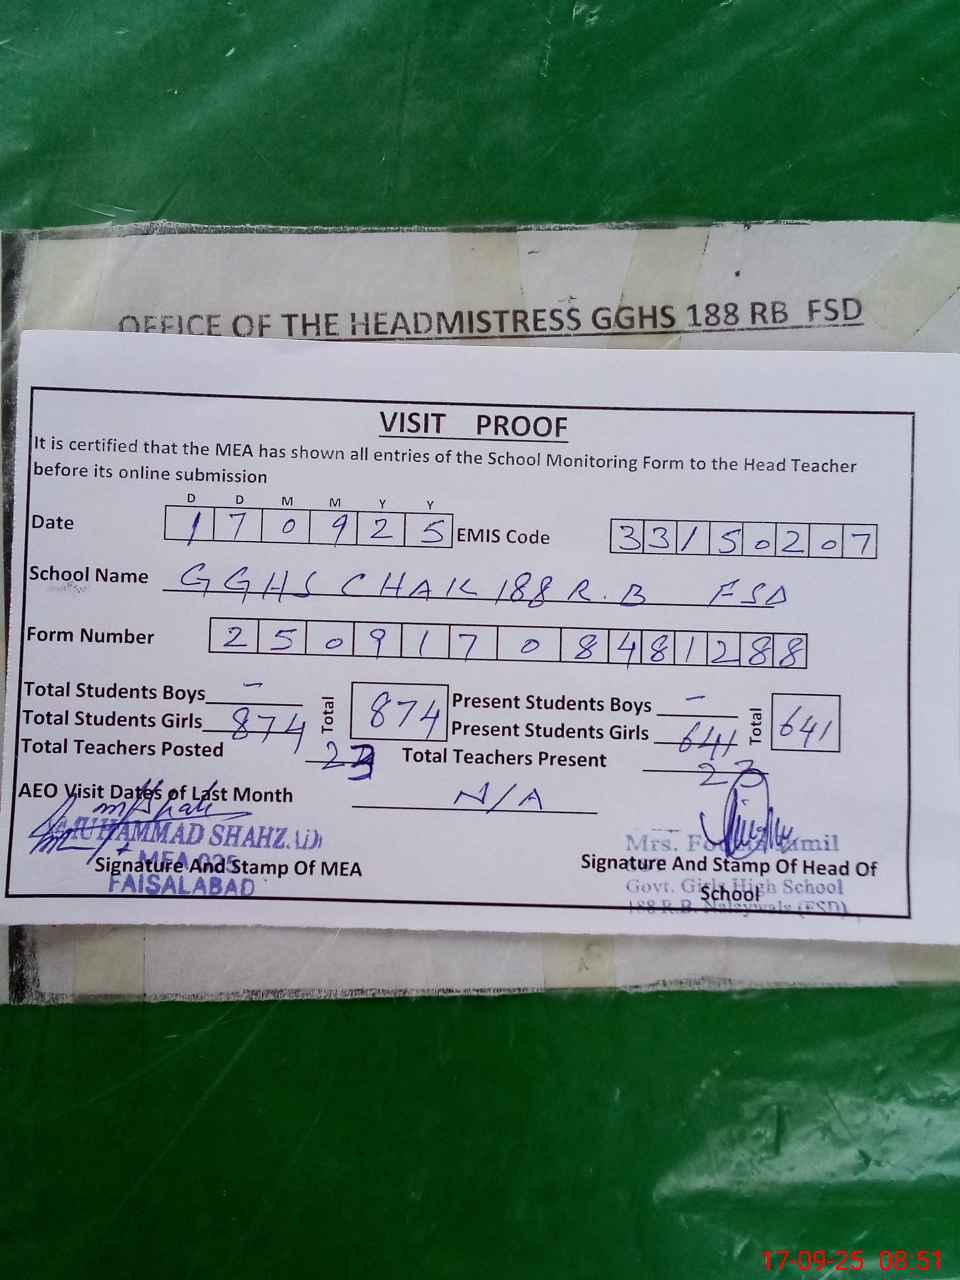 OFFICE OF THE HEADMISTRESS GGHS 188 RB FSD
VISIT PROOF
It is certified that the MEA has shown all entries of the School Monitoring Form to the Head Teacher
before its online submission
D D M M Y Y
Date 1 7 0 9 2 5 EMIS Code 3 3 1 5 0 2 0 7
School Name GGHS CHAK 188 R.B FSD
Form Number 2 5 0 9 1 7 0 8 4 8 1 2 8 8
Total Students Boys - Present Students Boys -
Total Students Girls 874 Total 874 Present Students Girls 641 Total 641
Total Teachers Posted 23 Total Teachers Present 23
AEO Visit Dates of Last Month N/A
MUHAMMAD SHAHZAD
Mrs.
Signature And Stamp Of MEA
Signature And Stamp Of Head Of
School
FAISALABAD
Govt. Girls High School
188 R.B. (FSD)
17-09-25 08:51